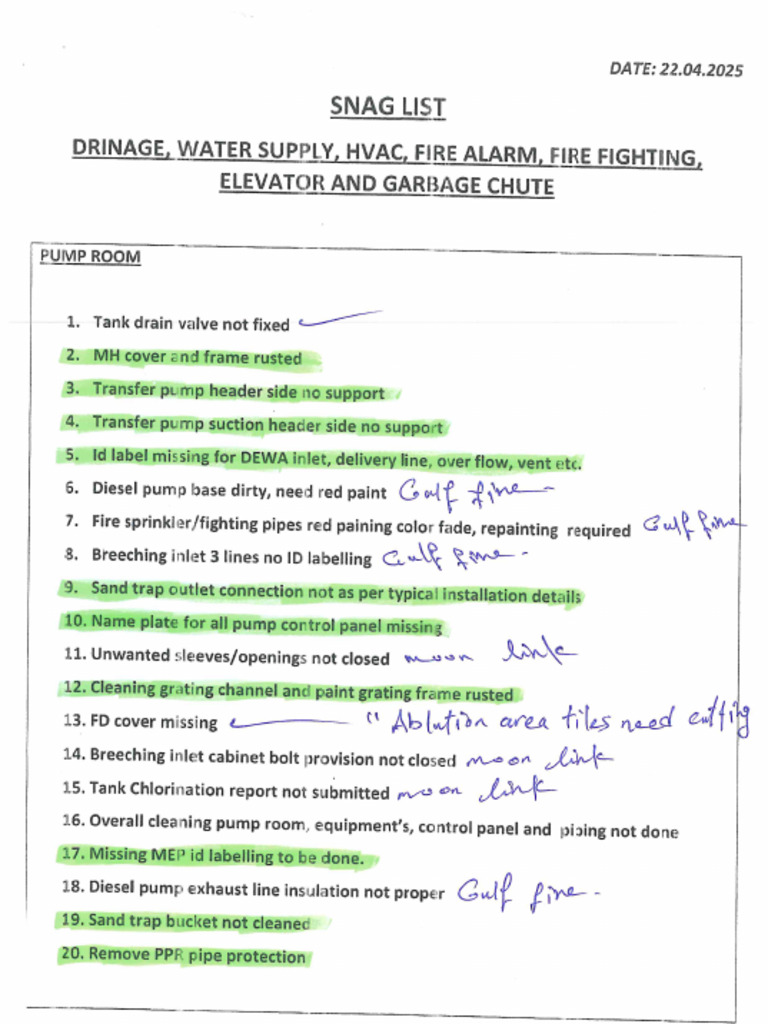 DATE: 22.04.2025
SNAG LIST
DRINAGE, WATER SUPPLY, HVAC, FIRE ALARM, FIRE FIGHTING,
ELEVATOR AND GARBAGE CHUTE
PUMP ROOM
1. Tank drain valve not fixed
2. MH cover and frame rusted
3. Transfer pump header side no support
4. Transfer pump suction header side no support
5. Id label missing for DEWA inlet, delivery line, over flow, vent etc.
6. Diesel pump base dirty, need red paint Gulf fire
7. Fire sprinkler/fighting pipes red paining color fade, repainting required Gulf fire
8. Breeching inlet 3 lines no ID labelling Gulf fire -
9. Sand trap outlet connection not as per typical installation details
10. Name plate for all pump control panel missing
11. Unwanted sleeves/openings not closed moon link
12. Cleaning grating channel and paint grating frame rusted
13. FD cover missing " Ablution area tiles need cutting
14. Breeching inlet cabinet bolt provision not closed moon link
15. Tank Chlorination report not submitted moon link
16. Overall cleaning pump room, equipment's, control panel and piping not done
17. Missing MEP id labelling to be done.
18. Diesel pump exhaust line insulation not proper Gulf fire -
19. Sand trap bucket not cleaned
20. Remove PPR pipe protection